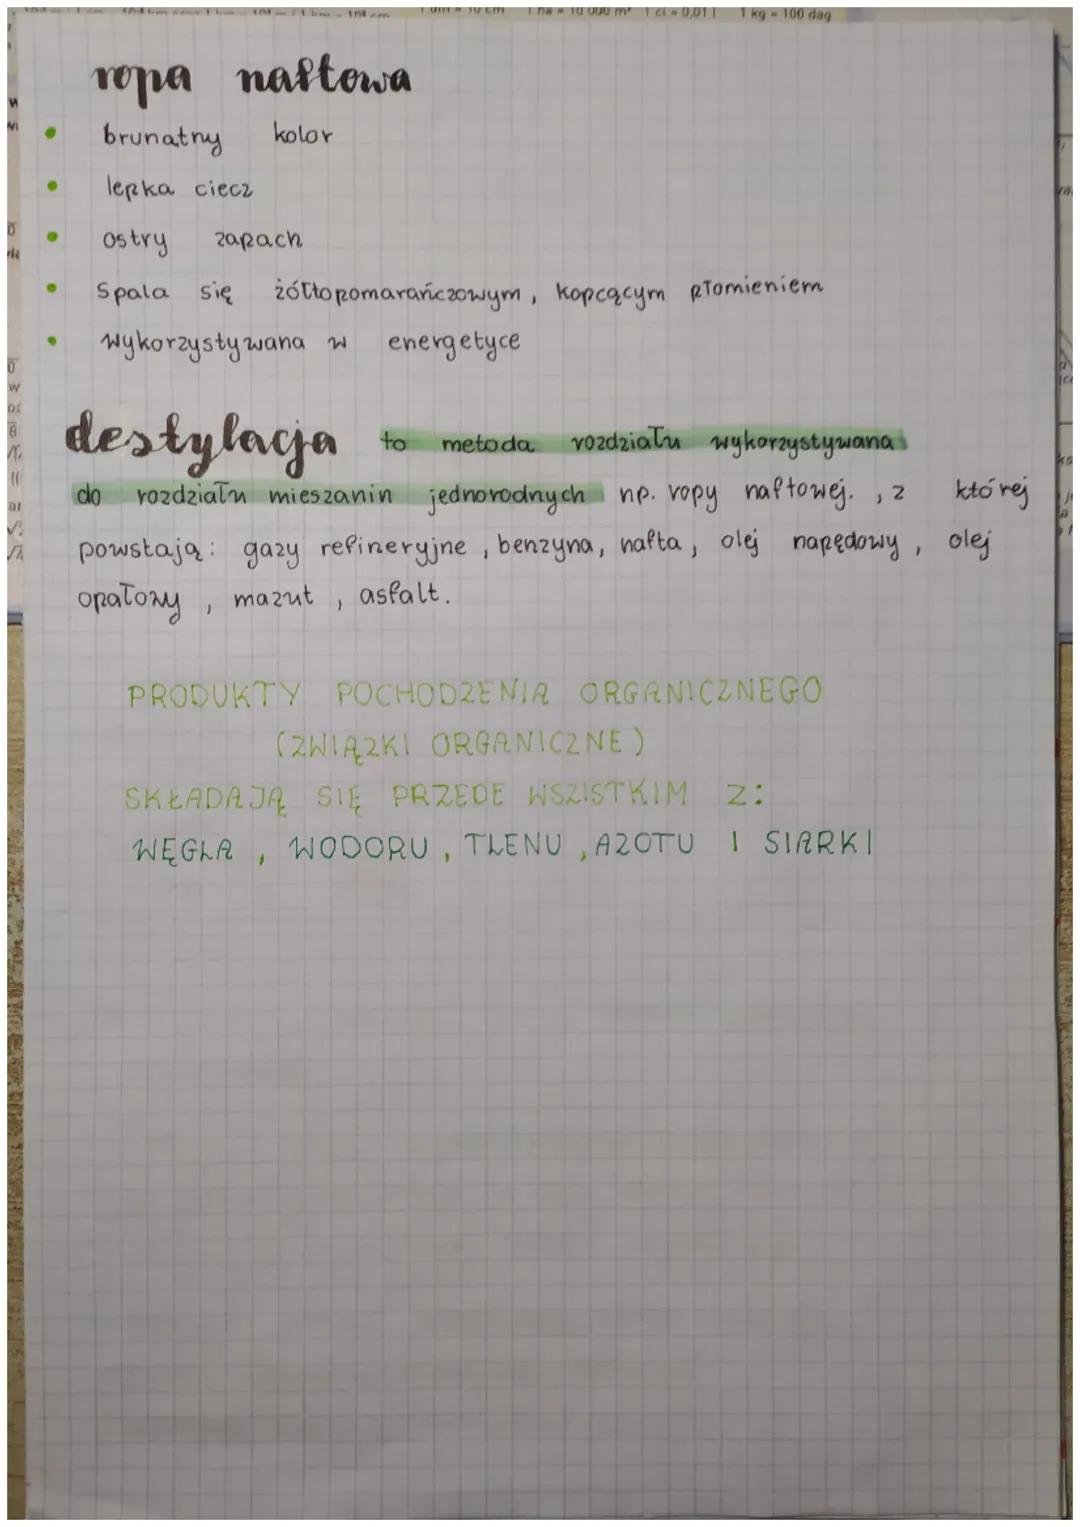 1 kg = 100 dag
ropa naftowa
brunatny kolor
lepka ciecz
ostry zapach
Spala się żółtopomarańczowym, kopcącym płomieniem
wykorzystywana w energetyce
destylacja to metoda rozdziału wykorzystywana
do rozdziału mieszanin jednorodnych np. ropy naftowej. , z której
powstają: gazy refineryjne, benzyna, nafta, olej napędowy, olej
opałowy, mazut, asfalt.
PRODUKTY POCHODZENIA ORGANICZNEGO
(ZWIĄZKI ORGANICZNE)
SKŁADAJĄ SIĘ PRZEDE WSZISTKIM Z:
WĘGLA, WODORU, TLENU, AZOTU I SIARKI